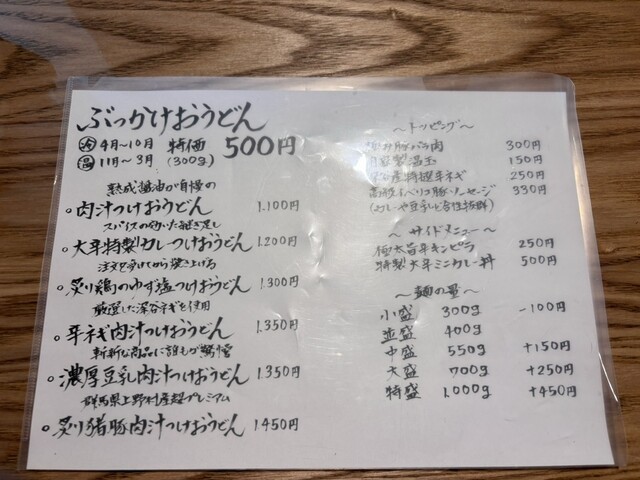 ぶっかけおうどん
冷 4月〜10月 特価 500円
温 11月〜3月 (300g)
熟成醤油が自慢の
肉汁つけおうどん 1.100円
スパイスの効いた継ぎ足し
大辛特製カレーつけおうどん 1.200円
注文受けてから焼き上げる
炙り鶏のゆず塩つけおうどん 1.300円
厳選した深谷ネギを使用
辛ネギ肉汁つけおうどん 1.350円
斬新な商品に誰しが驚愕
濃厚豆乳肉汁つけおうどん 1.350円
群馬県上野村産超プレミアム
炙り猪豚肉汁つけおうどん 1450円
〜トッピング〜
豚バラ肉 300円
製温玉 150円
産特選辛ネギ 250円
高級イベリコ豚ソーセージ 330円
(カレーや豆乳と相性抜群)
〜サイドメニュー〜
極太旨辛キンピラ 250円
特製大辛ミニカレー丼 500円
〜麺の量〜
小盛 300g -100円
並盛 400g
中盛 550g +150円
大盛 700g +250円
特盛 1.000g +450円